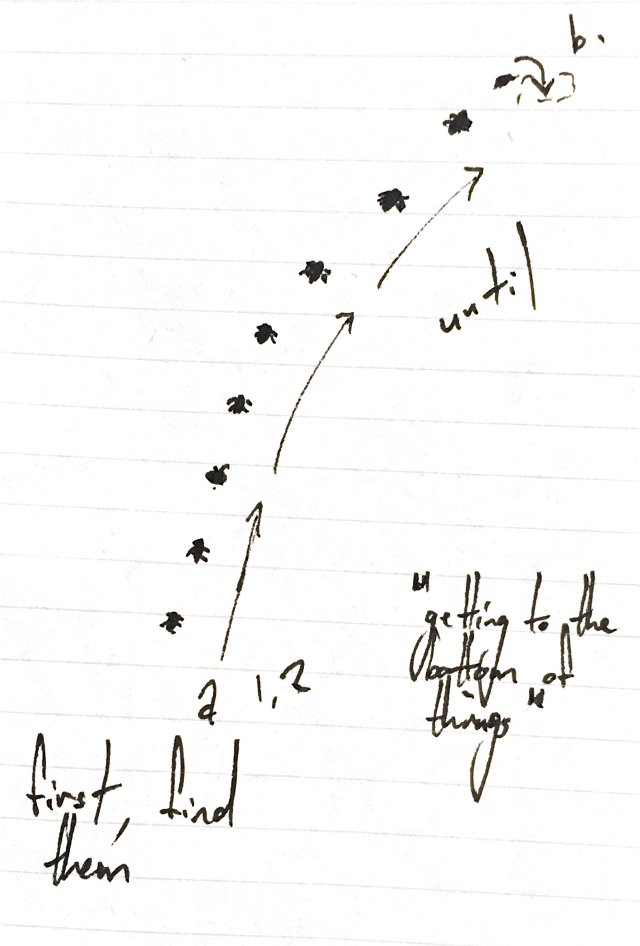 b.
until
"getting to the
bottom of
things"
a 1,2
first, find
them